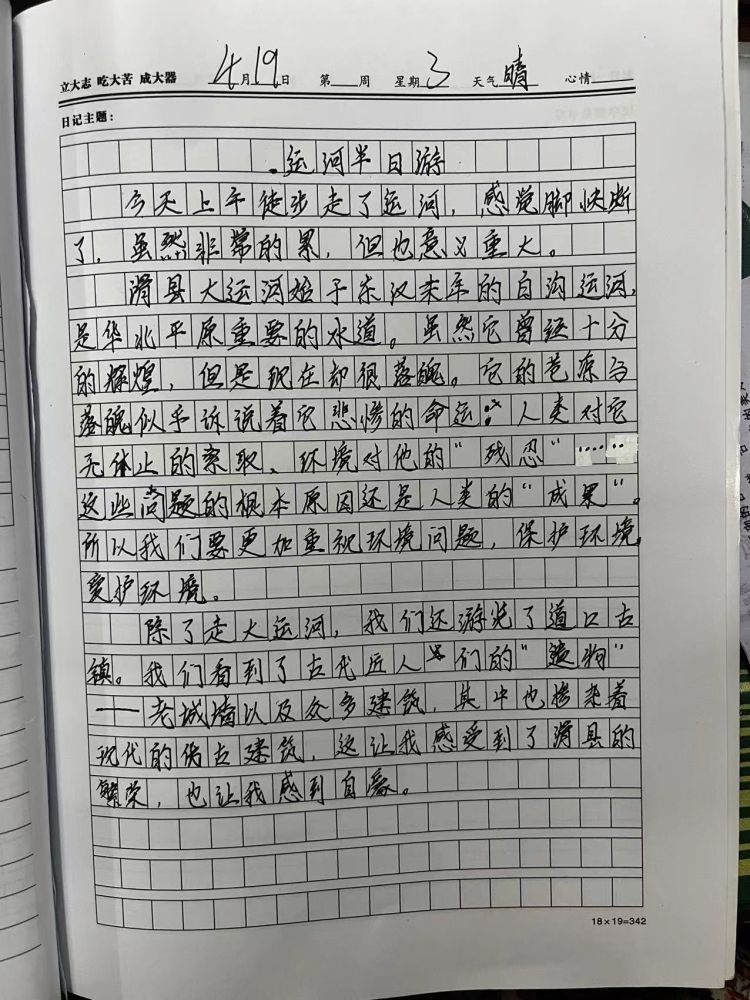 立大志 吃大苦 成大器 4月19日 第 周 星期3 天气晴 心情
日记主题:
运河半日游
今天上午徒步走了运河，感觉脚快断
了，虽然非常的累，但也意义重大。
滑县大运河始于东汉末年的白沟运河，
是华北平原重要的水道。虽然它曾经十分
的辉煌，但是现在却很落魄。它的苍凉与
落魄似乎诉说着它悲惨的命运：人类对它
无休止的索取、环境对他的“残忍”……
这些问题的根本原因还是人类的“成果”。
所以我们要更加重视环境问题，保护环境，
爱护环境。
除了走大运河，我们还游览了道口古
镇。我们看到了古代匠人们的“造物”
——老城墙以及众多建筑，其中也掺杂着
现代的仿古建筑，这让我感受到了滑县的
繁荣，也让我感到自豪。
18×19=342